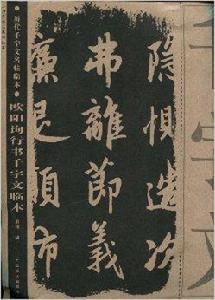 隱惻造次
弗離節義
廉退顛沛
历代千字文名临本
欧阳询行书千字文临本